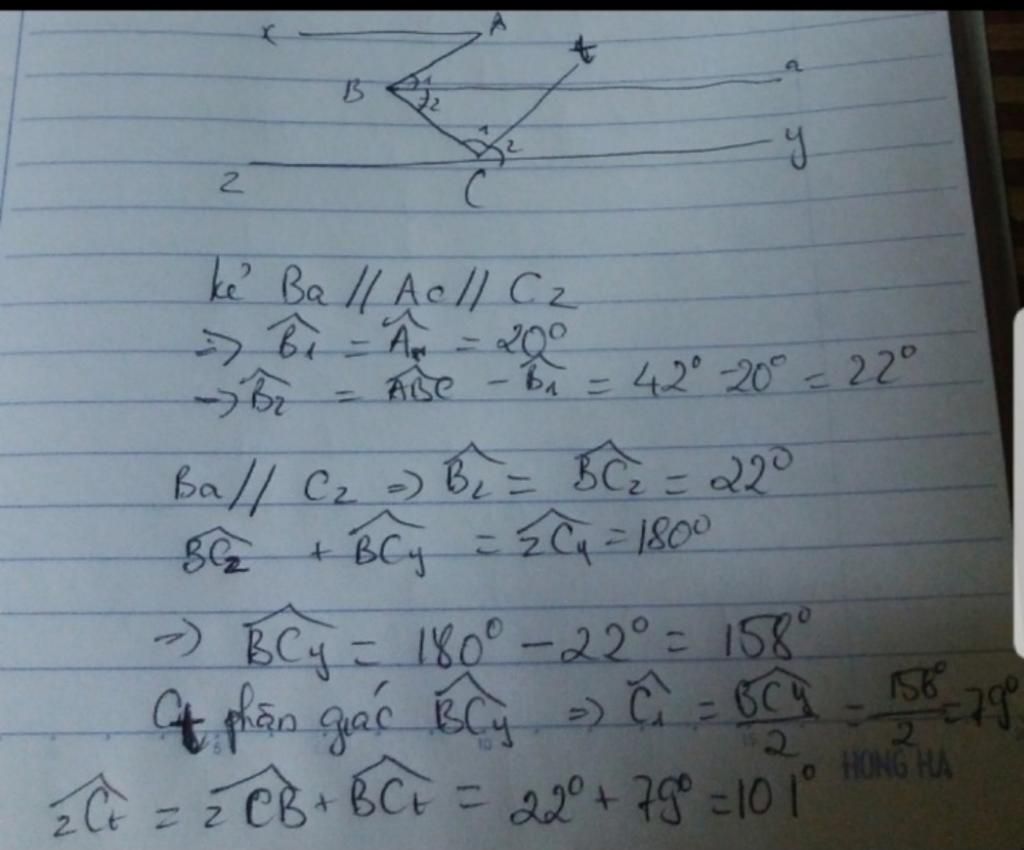 x A t
B 1 2 a
1 2 y
z C
kẻ Ba // Ac // Cz
=> B̂1 = Â = 20°
-> B̂2 = ABC^ - B̂1 = 42° - 20° = 22°
Ba // Cz => B̂2 = BCz^ = 22°
BCz^ + BCy^ = zCy^ = 180°
=> BCy^ = 180° - 22° = 158°
Ct phân giác BCy^ => Ĉ1 = BCy^/2 = 158°/2 = 79°
HONG HA
zCt^ = zCB^ + BCt^ = 22° + 79° = 101°